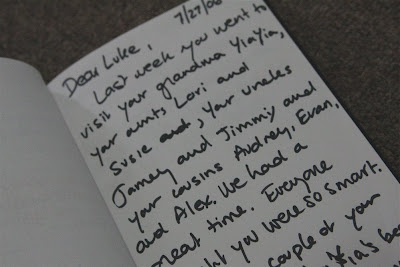 7/27/00
Dear Luke,
Last week you went to
visit your grandma YiaYia,
your aunts, Lori and
Susie and, your uncles
Jamey and Jimmy and
your cousins Audrey, Evan,
and Alex. We had a
great time. Everyone
you were so smart.
couple of your